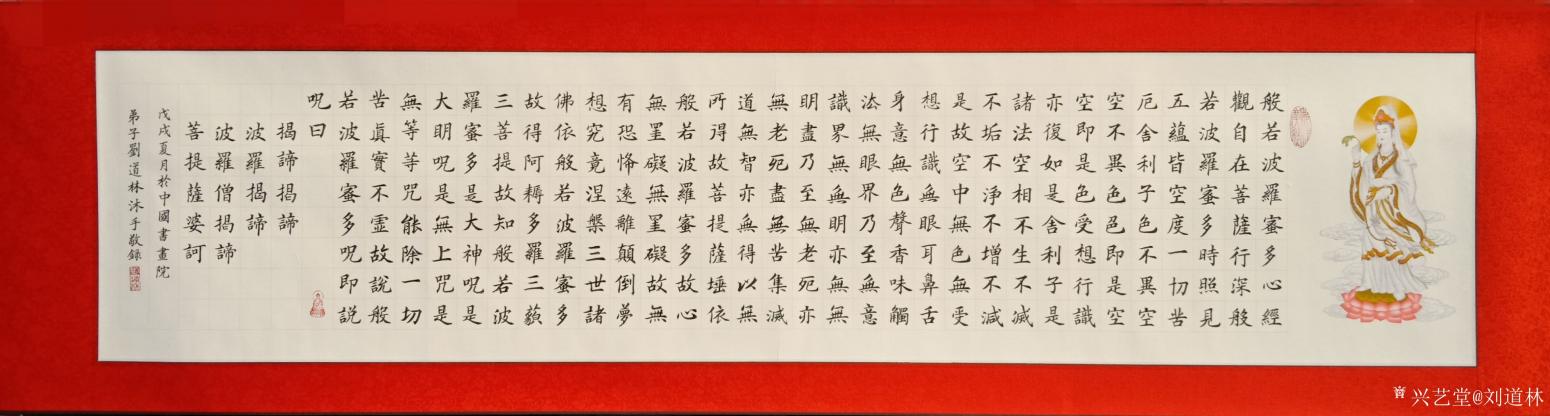 般若波羅蜜多心經
觀自在菩薩行深般
若波羅蜜多時照見
五蘊皆空度一切苦
厄舍利子色不異空
空不異色色即是空
空即是色受想行識
亦復如是舍利子是
諸法空相不生不滅
不垢不淨不增不減
是故空中無色無受
想行識無眼耳鼻舌
身意無色聲香味觸
法無眼界乃至無意
識界無無明亦無無
明盡乃至無老死亦
無老死盡無苦集滅
道無智亦無得以無
所得故菩提薩埵依
般若波羅蜜多故心
無罣礙無罣礙故無
有恐怖遠離顛倒夢
想究竟涅槃三世諸
佛依般若波羅蜜多
故得阿耨多羅三藐
三菩提故知般若波
羅蜜多是大神呪是
大明呪是無上咒是
無等等咒能除一切
苦真實不虛故說般
若波羅蜜多呪即説
呪曰
揭諦揭諦
波羅揭諦
波羅僧揭諦
菩提薩婆訶
戊戌夏月於中國書畫院
弟子劉道林沐手敬錄
兴艺堂@刘道林